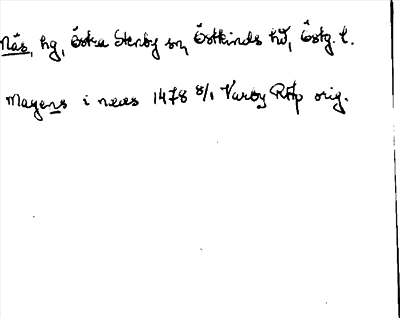 Näs, hg, Östra Stenby sn, Östkinds hd, Östg. l.
Magens i næs 1478 8/1 Varby RAp orig.